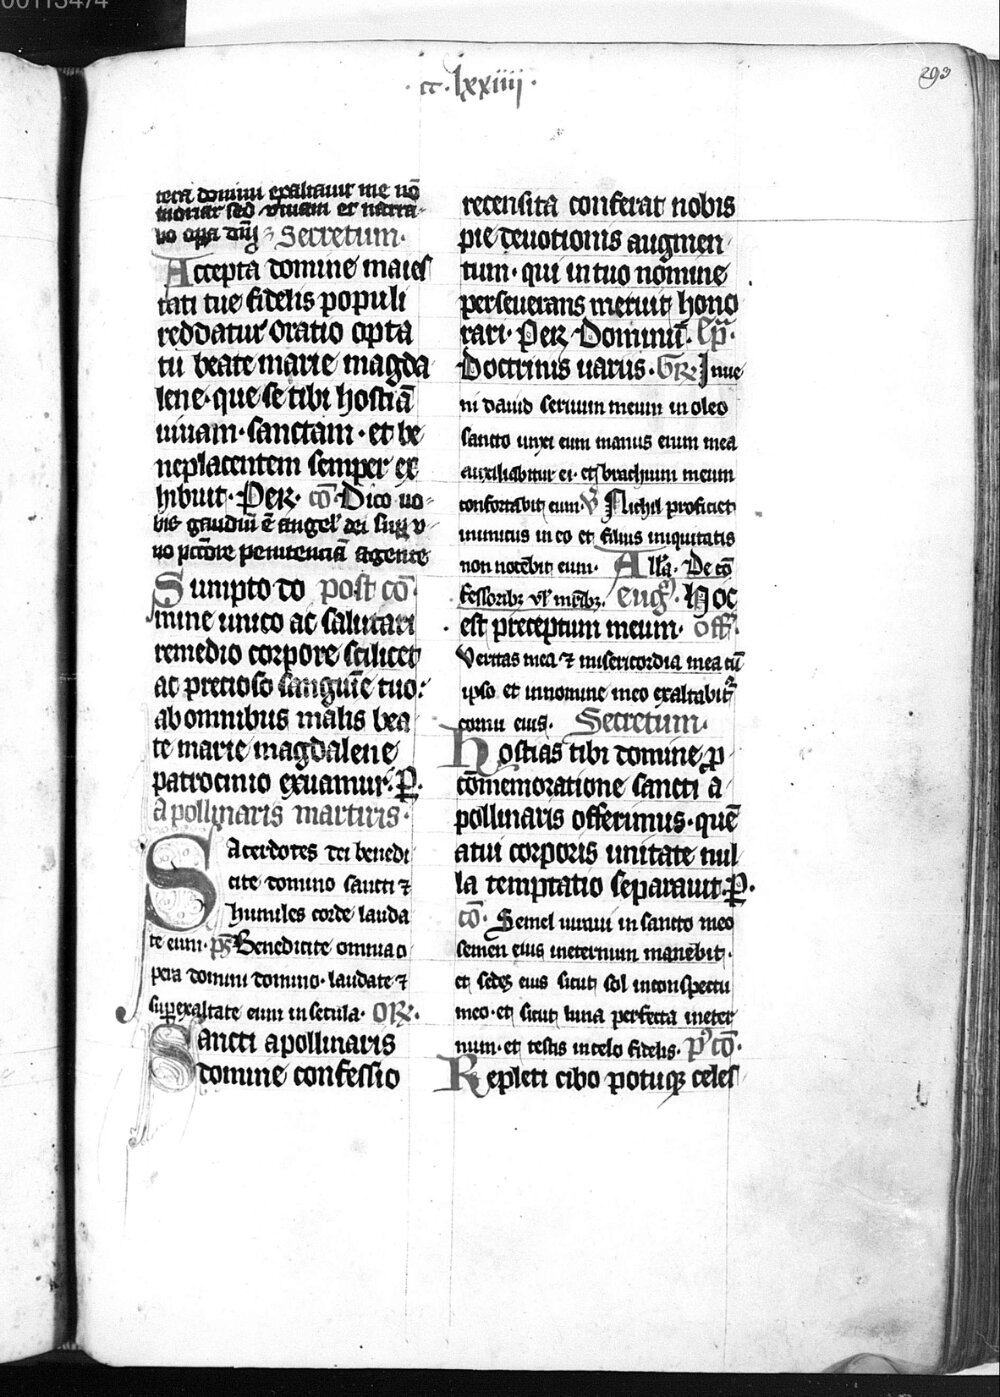 00113474
·cc·lxxiiii·
293
tera domini exaltauit me nō
moriar sed viuam et narra-
bo opa dnj Secretum·
Accepta domine maies
tati tue fidelis populi
reddatur oratio opta
tu beate marie magda
lene·que se tibi hostiā
uiuam·sanctam·et be
neplacentem semper ex
hibuit·Per·cō·Dico uo-
bis gaudiū ē angel' dei sup v
no pctōre penitenciā agente
Sumpto do post cō·
mine unico ac salutari
remedio corpore scilicet
ac precioso sanguīe tuo:
ab omnibus malis bea
te marie magdalene
patrocinio exuamur·P·
Apollinaris martiris·
Sacerdotes dei benedi
cite domino sancti ⁊
humiles corde lauda
te eum·ps̄ Benedicite omnia o
pera domini domino·laudate ⁊
supexaltate eum in secula·OR·
Sancti apollinaris
domine confessio
recensita conferat nobis
pie deuotionis augmen
tum·qui in tuo nomine
perseuerans meruit hono
rari·Per Dominū·Ep̄·
Doctrinis uariis·GR Inue
ni dauid seruum meum in oleo
sancto unxi eum manus enim mea
auxiliabitur ei·et brachium meum
confortabit eum·V Nichil proficiet
inimicus in eo et filius iniquitatis
non nocebit eum· All'a·De cō
fessoribz vl' mrībz·eug·Hoc
est preceptum meum·off·
Veritas mea ⁊ misericordia mea cū
ipso et in nomine meo exaltabit
cornu eius· Secretum·
Hostias tibi domine p
cōmemoratione sancti a
pollinaris offerimus·quē
a tui corporis unitate nul
la temptatio separauit·P·
cō·Semel iuraui in sancto meo
semen eius in eternum manebit·
et sedes eius sicut sol in conspectu
meo·et sicut luna perfecta in eter
num·et testis in celo fidelis·p' cō·
Repleti cibo potuq celes